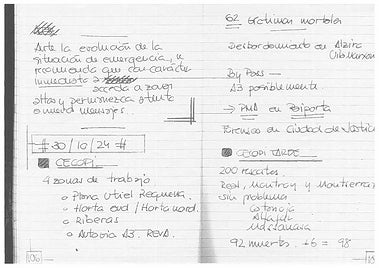 Ante la evolución de la
situación de emergencia, se
recomienda que con carácter
inmediato acceda a zonas
altas y permanezca atento
a nuevos mensajes.
# 30/10/24 #
CECOPI
4 zonas de trabajo
o Plana Utiel Requena.
o Horta sud / Horta nord.
o Riberas
o Autovía A3. REVA
106
62 víctimas mortales
Desbordamiento en Alzira
By Pass -
A3 posiblemente.
→ PMA en Paiporta
Forenses en Ciudad de Justicia
CECOPI TARDE
200 rescates.
Real, Montroy y Montserrat
sin problema
Catarroja
Alfafar
Massanassa
92 muertos. +6 = 98